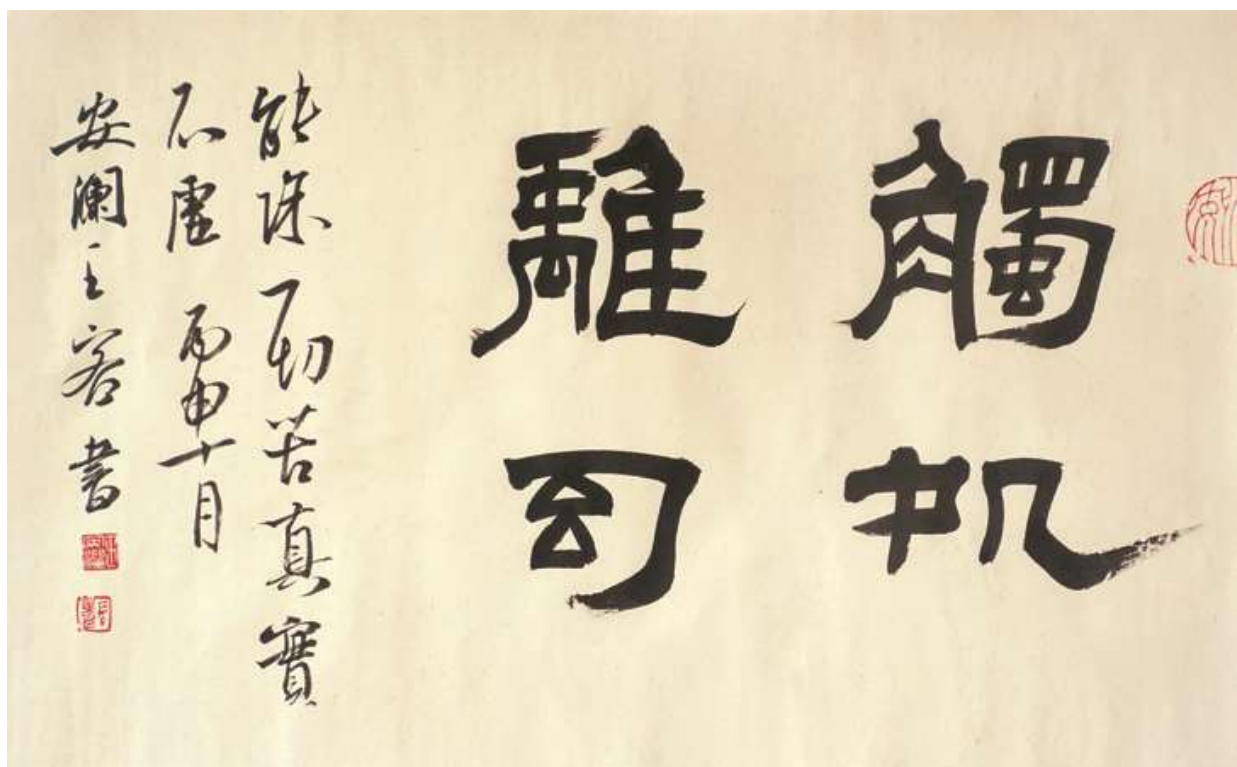 觸
離
能除一切苦真實
不虛 丙申十月
安瀾 客書